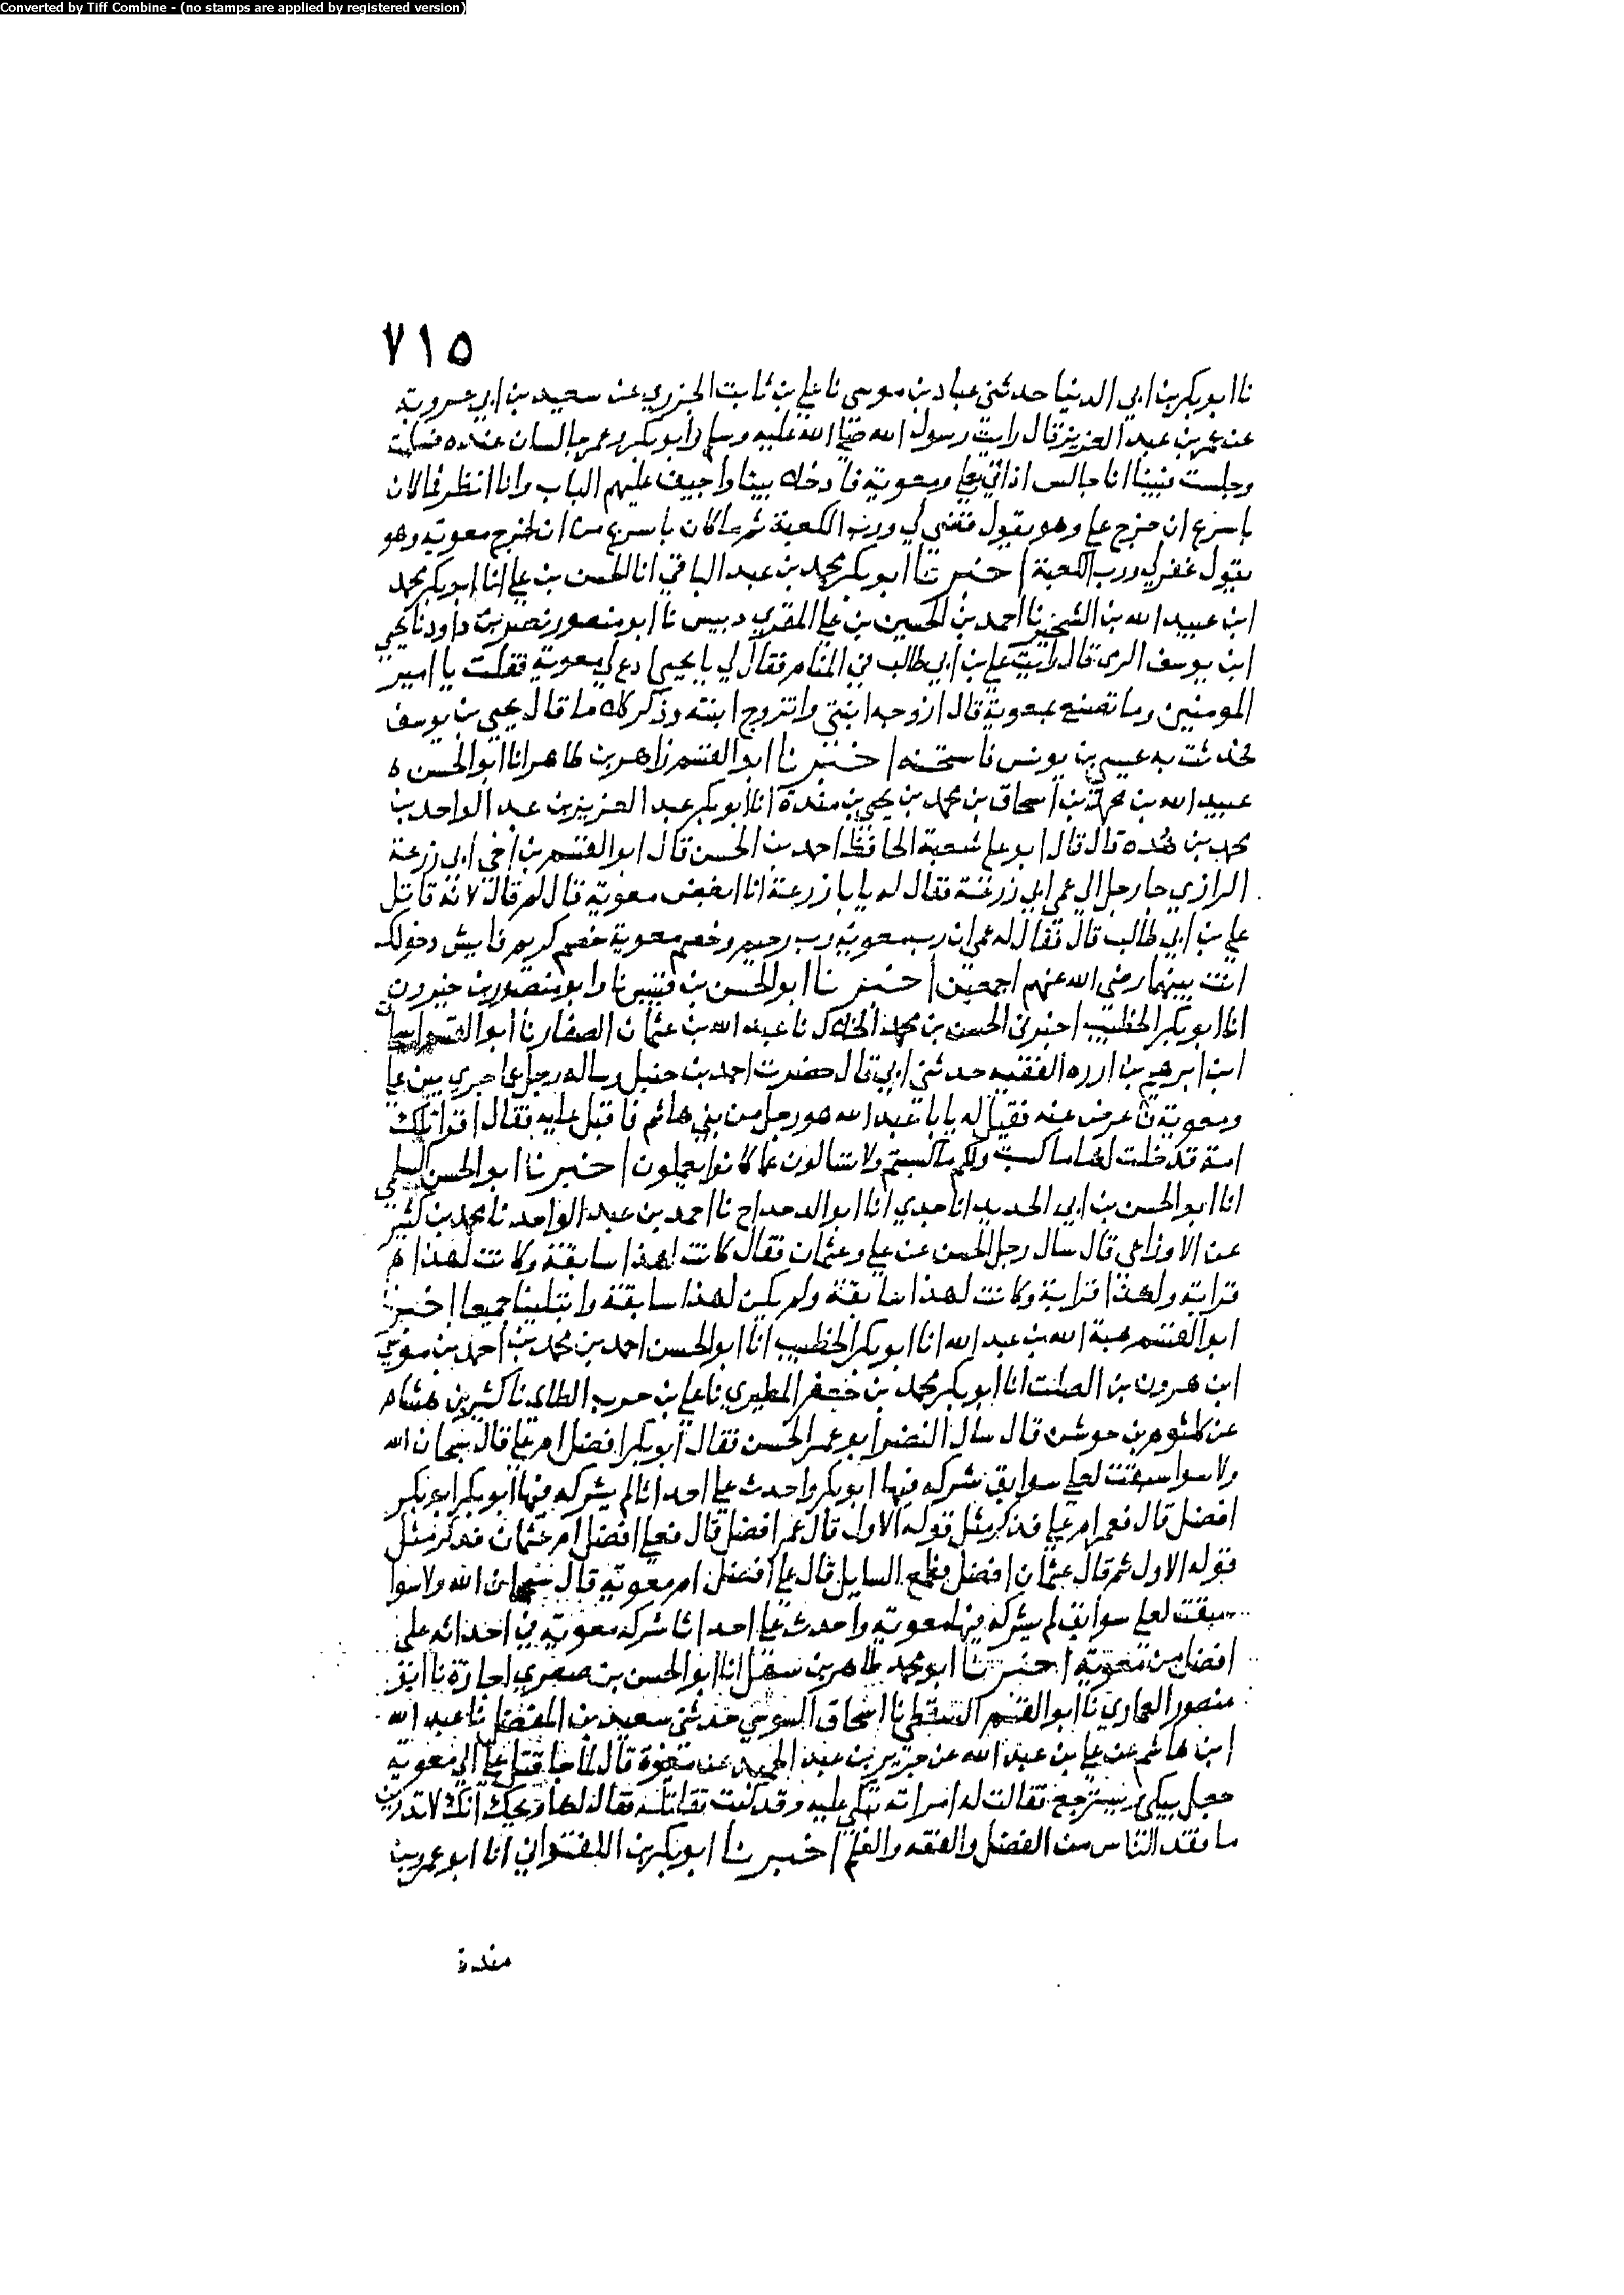 Converted by Tiff Combine - (no stamps are applied by registered version)
٧١٥
نا ابو بكر بن ابي الدنيا حدثني عباد بن موسى نا علي بن ثابت الجزري عن سعيد بن ابي عروبة
عن عمر بن عبد العزيز قال رايت رسول الله صلى الله عليه وسلم وابو بكر وعمر جالسان عنده فسلمت
وجلست فبينا انا جالس اذ اتي بعلي ومعوية فادخلا بيتا واجيف عليهم الباب وانا انظر فما كان
باسرع ان خرج علي وهو يقول قضي لي ورب الكعبة ثم ما كان باسرع من ان خرج معوية وهو
يقول غفر لي ورب الكعبة اخبرنا ابو بكر محمد بن عبد الباقي انا الحسن بن علي انا ابو بكر محمد
ابن عبيد الله بن الشخير نا احمد بن الحسين بن علي المقري دبيس نا ابو منصور نصر بن داود نا يحيي
ابن يوسف الرمى قال رايت علي بن ابي طالب في المنام فقال لي يا يحيي ادع لي معوية فقلت يا امير
المومنين وما تصنع بمعوية قال ازوجه ابنتي واتزوج ابنته وذكر كلاما قال يحيي بن يوسف
فحدثت به عيسى بن يونس فاستحسنه اخبرنا ابو القسم زاهر بن طاهر انا ابو الحسن ه
عبيد الله بن محمد بن اسحاق بن محمد بن يحيي بن مندة انا ابو بكر عبد العزيز بن عبد الواحد بن
محمد بن قال قال ابو علي شعبة الحافظ احمد بن الحسن قال ابو القسم بن اخي ابي زرعة
الرازي جا رجل الي عمي ابي زرعة فقال له يابا زرعة انا ابغض معوية قال لم قال لانه قاتل
علي بن ابي طالب قال فقال له عمي ان رب معوية رب رحيم وخصم معوية خصم كريم فايش دخولك
انت بينهما رضي الله عنهم اجمعين اخبرنا ابو الحسن بن قبيس نا وابو منصور بن خيرون
انا ابو بكر الخطيب اخبرني الحسن بن محمد الخلال نا عبد الله بن عثمان الصفار نا ابو القسم اسحاق
ابن ابرهيم بن ازره الفقيه حدثني ابي قال حضرت احمد بن حنبل وساله رجل عما جري بين علي
ومعوية فاعرض عنه فقيل له يابا عبد الله هو رجل من بني هاشم فاقبل عليه فقال اقرا تلك
امة قد خلت لها ما كسبت ولكم ما كسبتم ولا تسالون عما كانوا يعملون اخبرنا ابو الحسن السلمي
انا ابو الحسن بن ابي الحديد انا جدي انا ابو الدحداح نا احمد بن عبد الواحد نا محمد بن كثير
عن الاوزاعي قال سال رجل الحسن عن علي وعثمان فقال كانت لهذا سابقة وكانت لهذا ه
قرابة ولهذا قرابة وكانت لهذا سابقة ولم يكن لهذا سابقة وابتلينا جميعا اخبرنا
ابو القسم هبة الله بن عبد الله انا ابو بكر الخطيب انا ابو الحسن احمد بن محمد بن احمد بن موسي
ابن هرون بن الصلت انا ابو بكر محمد بن جعفر المطيري نا علي بن حرب الطائي نا كثير بن هشام
عن كلثوم بن جوشن قال سال النضر ابو عمر الحسن فقال ابو بكر افضل ام علي قال سبحان الله
ولا سوا سبقت لعلي سوابق شركه فيها ابو بكر واحدث علي احداثا لم يشركه فيها ابو بكر ابو بكر
افضل قال فعمر ام علي فذكر مثل قوله الاول قال عمر افضل قال فعلي افضل ام عثمان فذكر مثل
قوله الاول ثم قال عثمان افضل السايل قال علي افضل ام معوية قال سبحان الله ولا سوا
سبقت لعلي سوابق لم يشركه فيها معوية واحدث علي احداثا شركه معوية في احداثه علي
افضل من معوية اخبرنا ابو محمد طاهر بن سهل انا ابو الحسن بن صصري اجازة نا ابو
منصور العماري نا ابو القسم السقطي نا اسحاق السوسي حدثني سعيد بن المفضل نا عبد الله
ابن هاشم عن علي بن عبد الله عن جرير بن عبد الحميد عن مغيرة قال لما جا قتل علي الي معوية
جعل يبكي ويسترجع فقالت له امراته تبكي عليه وقد كنت تقاتله فقال لها ويحك انك لا تدرين
ما فقد الناس من الفضل والفقه والعلم اخبرنا ابو بكر بن اللفتواني انا ابو عمرو بن
مندة